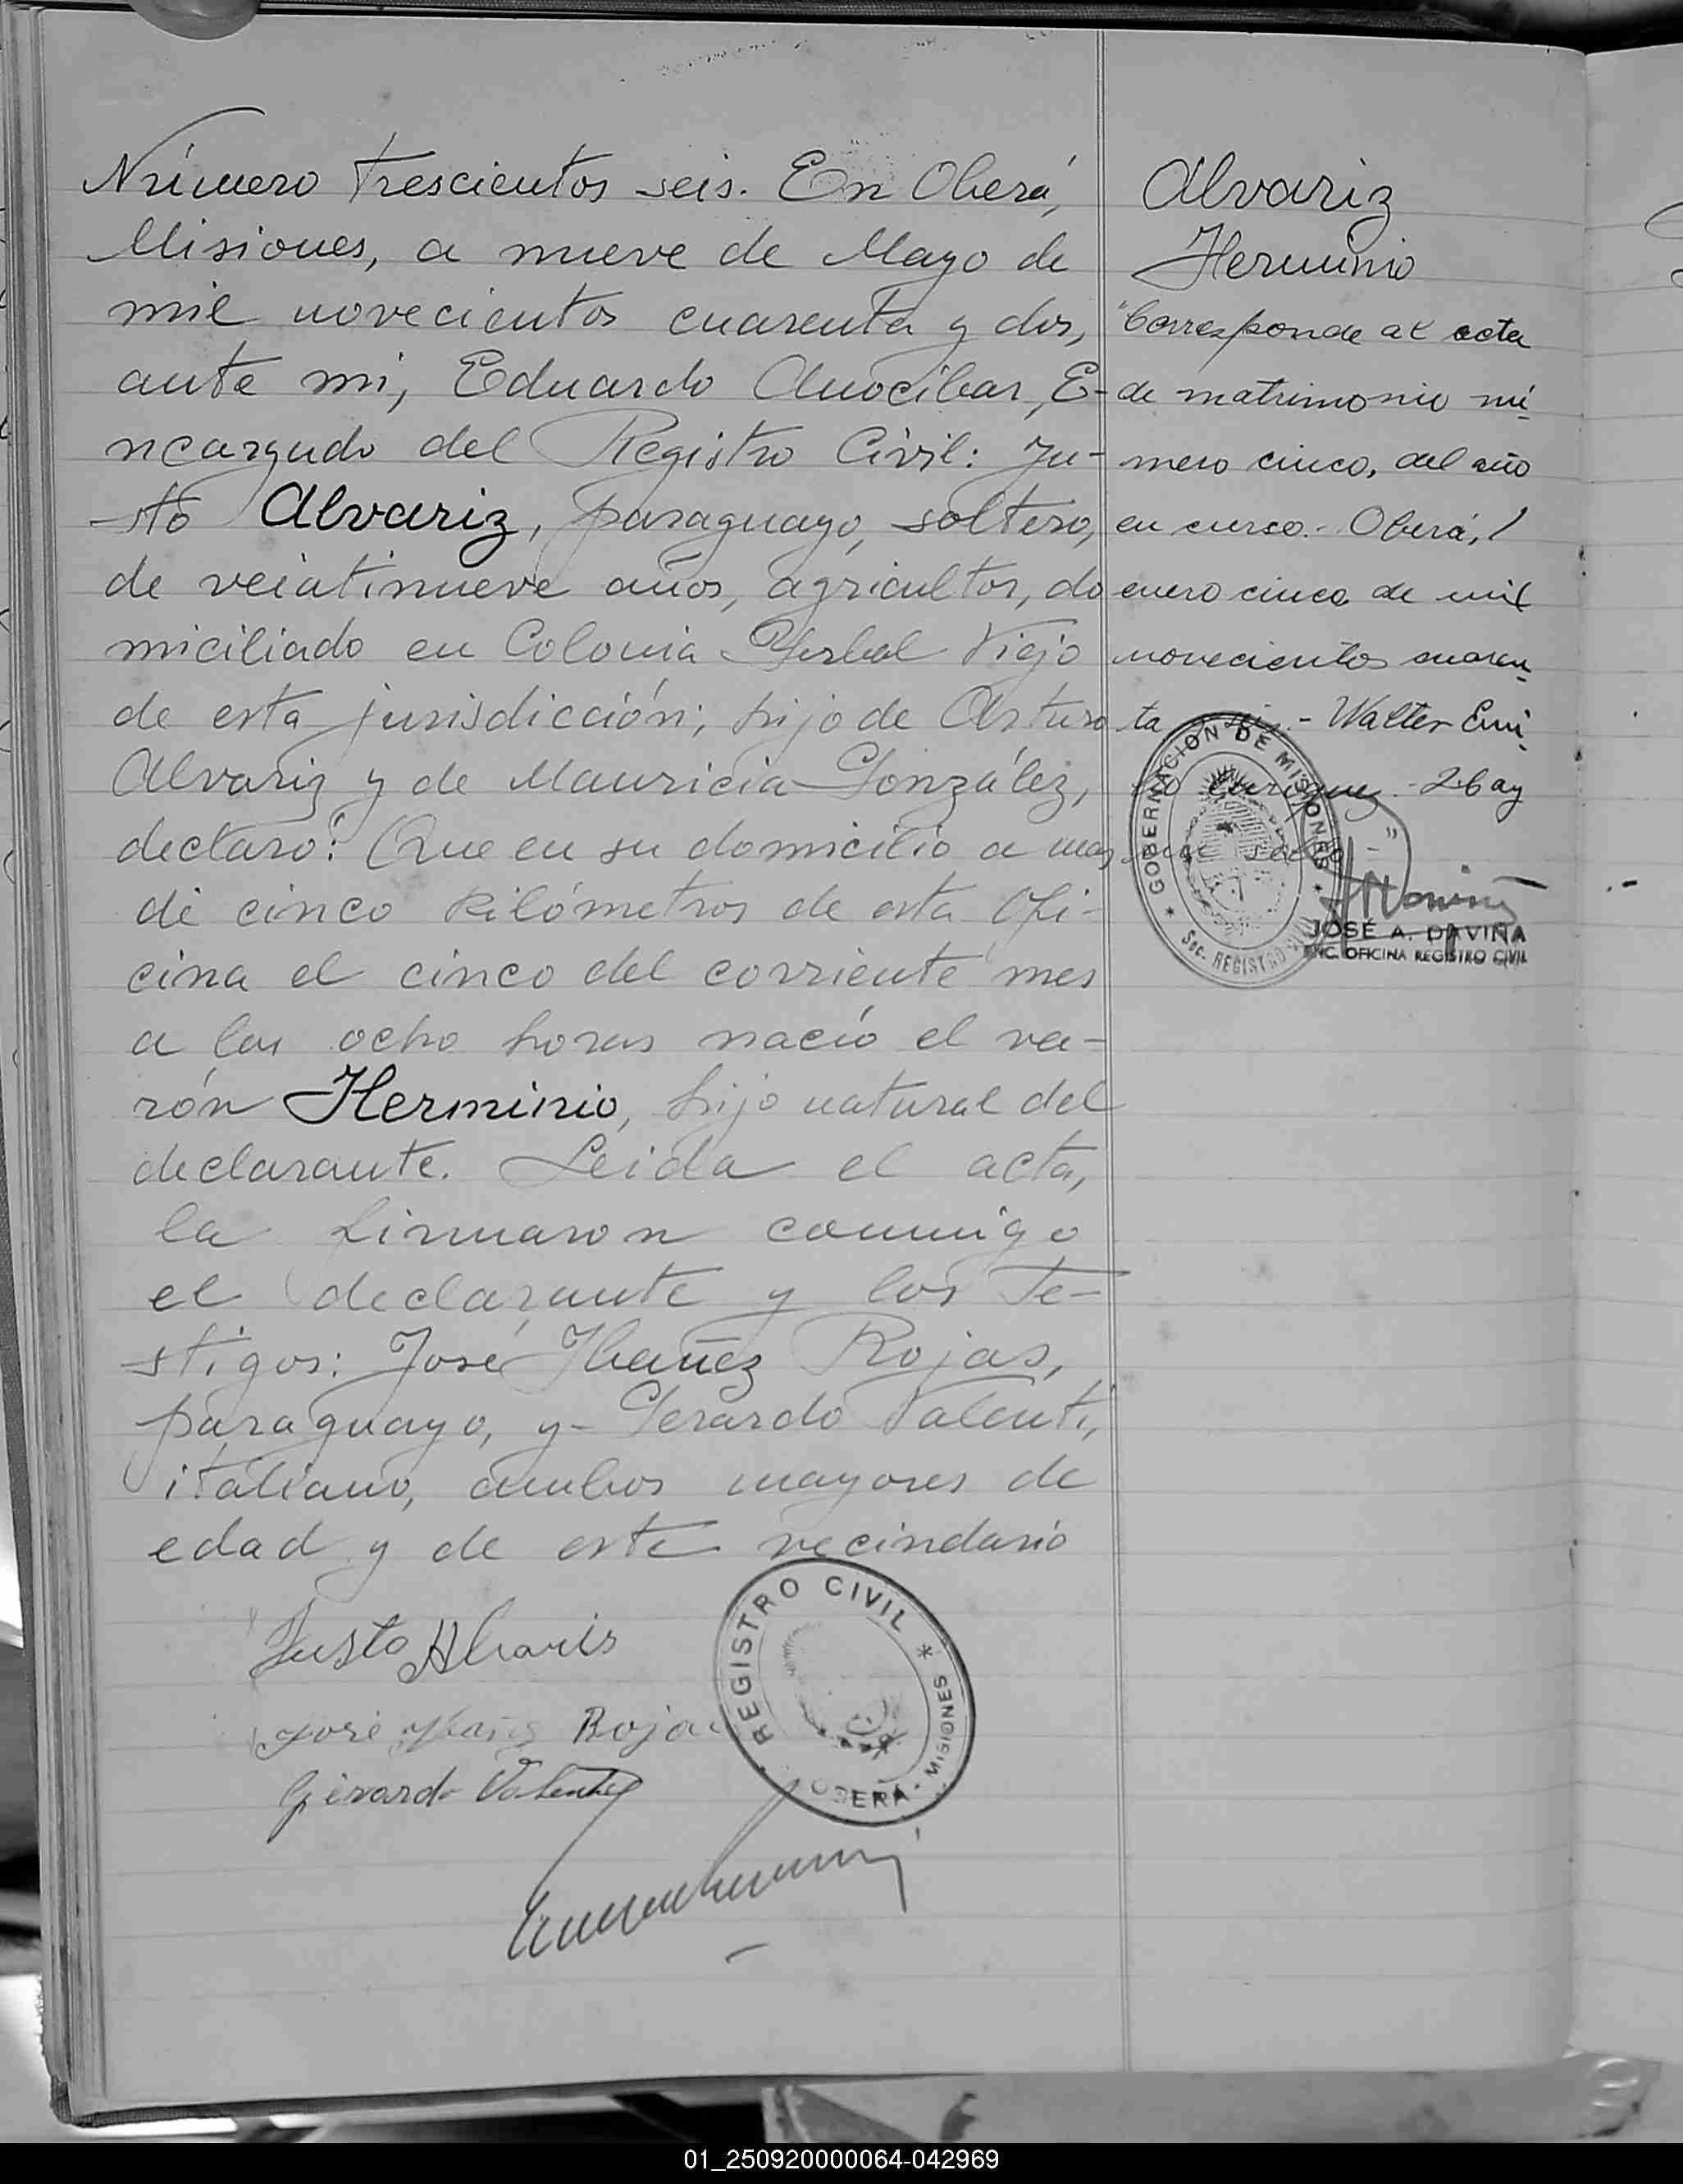 Número trescientos seis. En Oberá,
Misiones, a nueve de Mayo de
mil novecientos cuarenta y dos,
ante mi, Eduardo Anocibar, E-
ncargado del Registro Civil: Ju-
sto Alvariz, paraguayo, soltero,
de veintinueve años, agricultor, do
miciliado en Colonia Yerbal Viejo
de esta jurisdicción; hijo de Arturo
Alvariz y de Mauricia González,
declaro: Que en su domicilio a mas
de cinco kilómetros de esta Ofi-
cina el cinco del corriente mes
a las ocho horas nació el va-
rón Herminio, hijo natural del
declarante. Leida el acta,
la firmaron conmigo
el declarante y los te-
stigos: José Ibañez Rojas,
paraguayo, y Gerardo Valenti,
italiano, ambos mayores de
edad y de este vecindario
Justo Alvaris
José Ibañez Rojas
Gerardo Valenti
REGISTRO CIVIL * OBERÁ - MISIONES
Alvariz
Herminio
"Corresponde al acta
de matrimonio nú-
mero cinco, del año
en curso.- Oberá,
enero cinco de mil
novecientos cuaren-
ta - Walter Emi-
GOBERNACION DE MISIONES * Sec. REGISTRO CIVIL *
JOSÉ A. DAVIÑA
ENC. OFICINA REGISTRO CIVIL
01_250920000064-042969